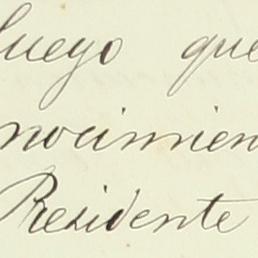 luego que
nocimien
Presidente